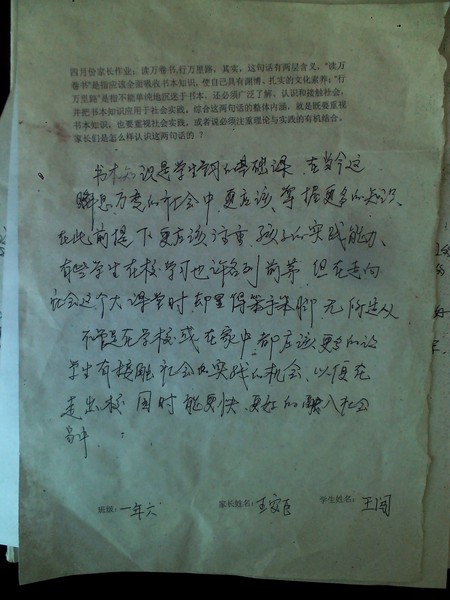 四月份家长作业：读万卷书,行万里路，其实，这句话有两层含义，"读万
卷书"是指应该全面吸收书本知识，使自己具有渊博、扎实的文化素养；"行
万里路"是指不能单纯地沉迷于书本，还必须广泛了解、认识和接触社会，
并把书本知识应用于社会实践。综合这两句话的整体内涵，就是既要重视
书本知识，也要重视社会实践，或者说必须注重理论与实践的有机结合。
家长们是怎么样认识这两句话的？
书本知识是学生学习的基础课，在当今这
瞬息万变的社会中，更应该掌握更多的知识。
在此前提下更应该注重孩子的实践能力。
有些学生在校学习也许名列前茅，但在走向
社会这个大课堂时，却显得笨手笨脚无所适从
不管是在学校或在家中，都应该更多的让
学生有接触社会和实践的机会，以便在
走出校园时能更快、更好的融入社会
当中。
班级：一年六 家长姓名： 学生姓名：王闯